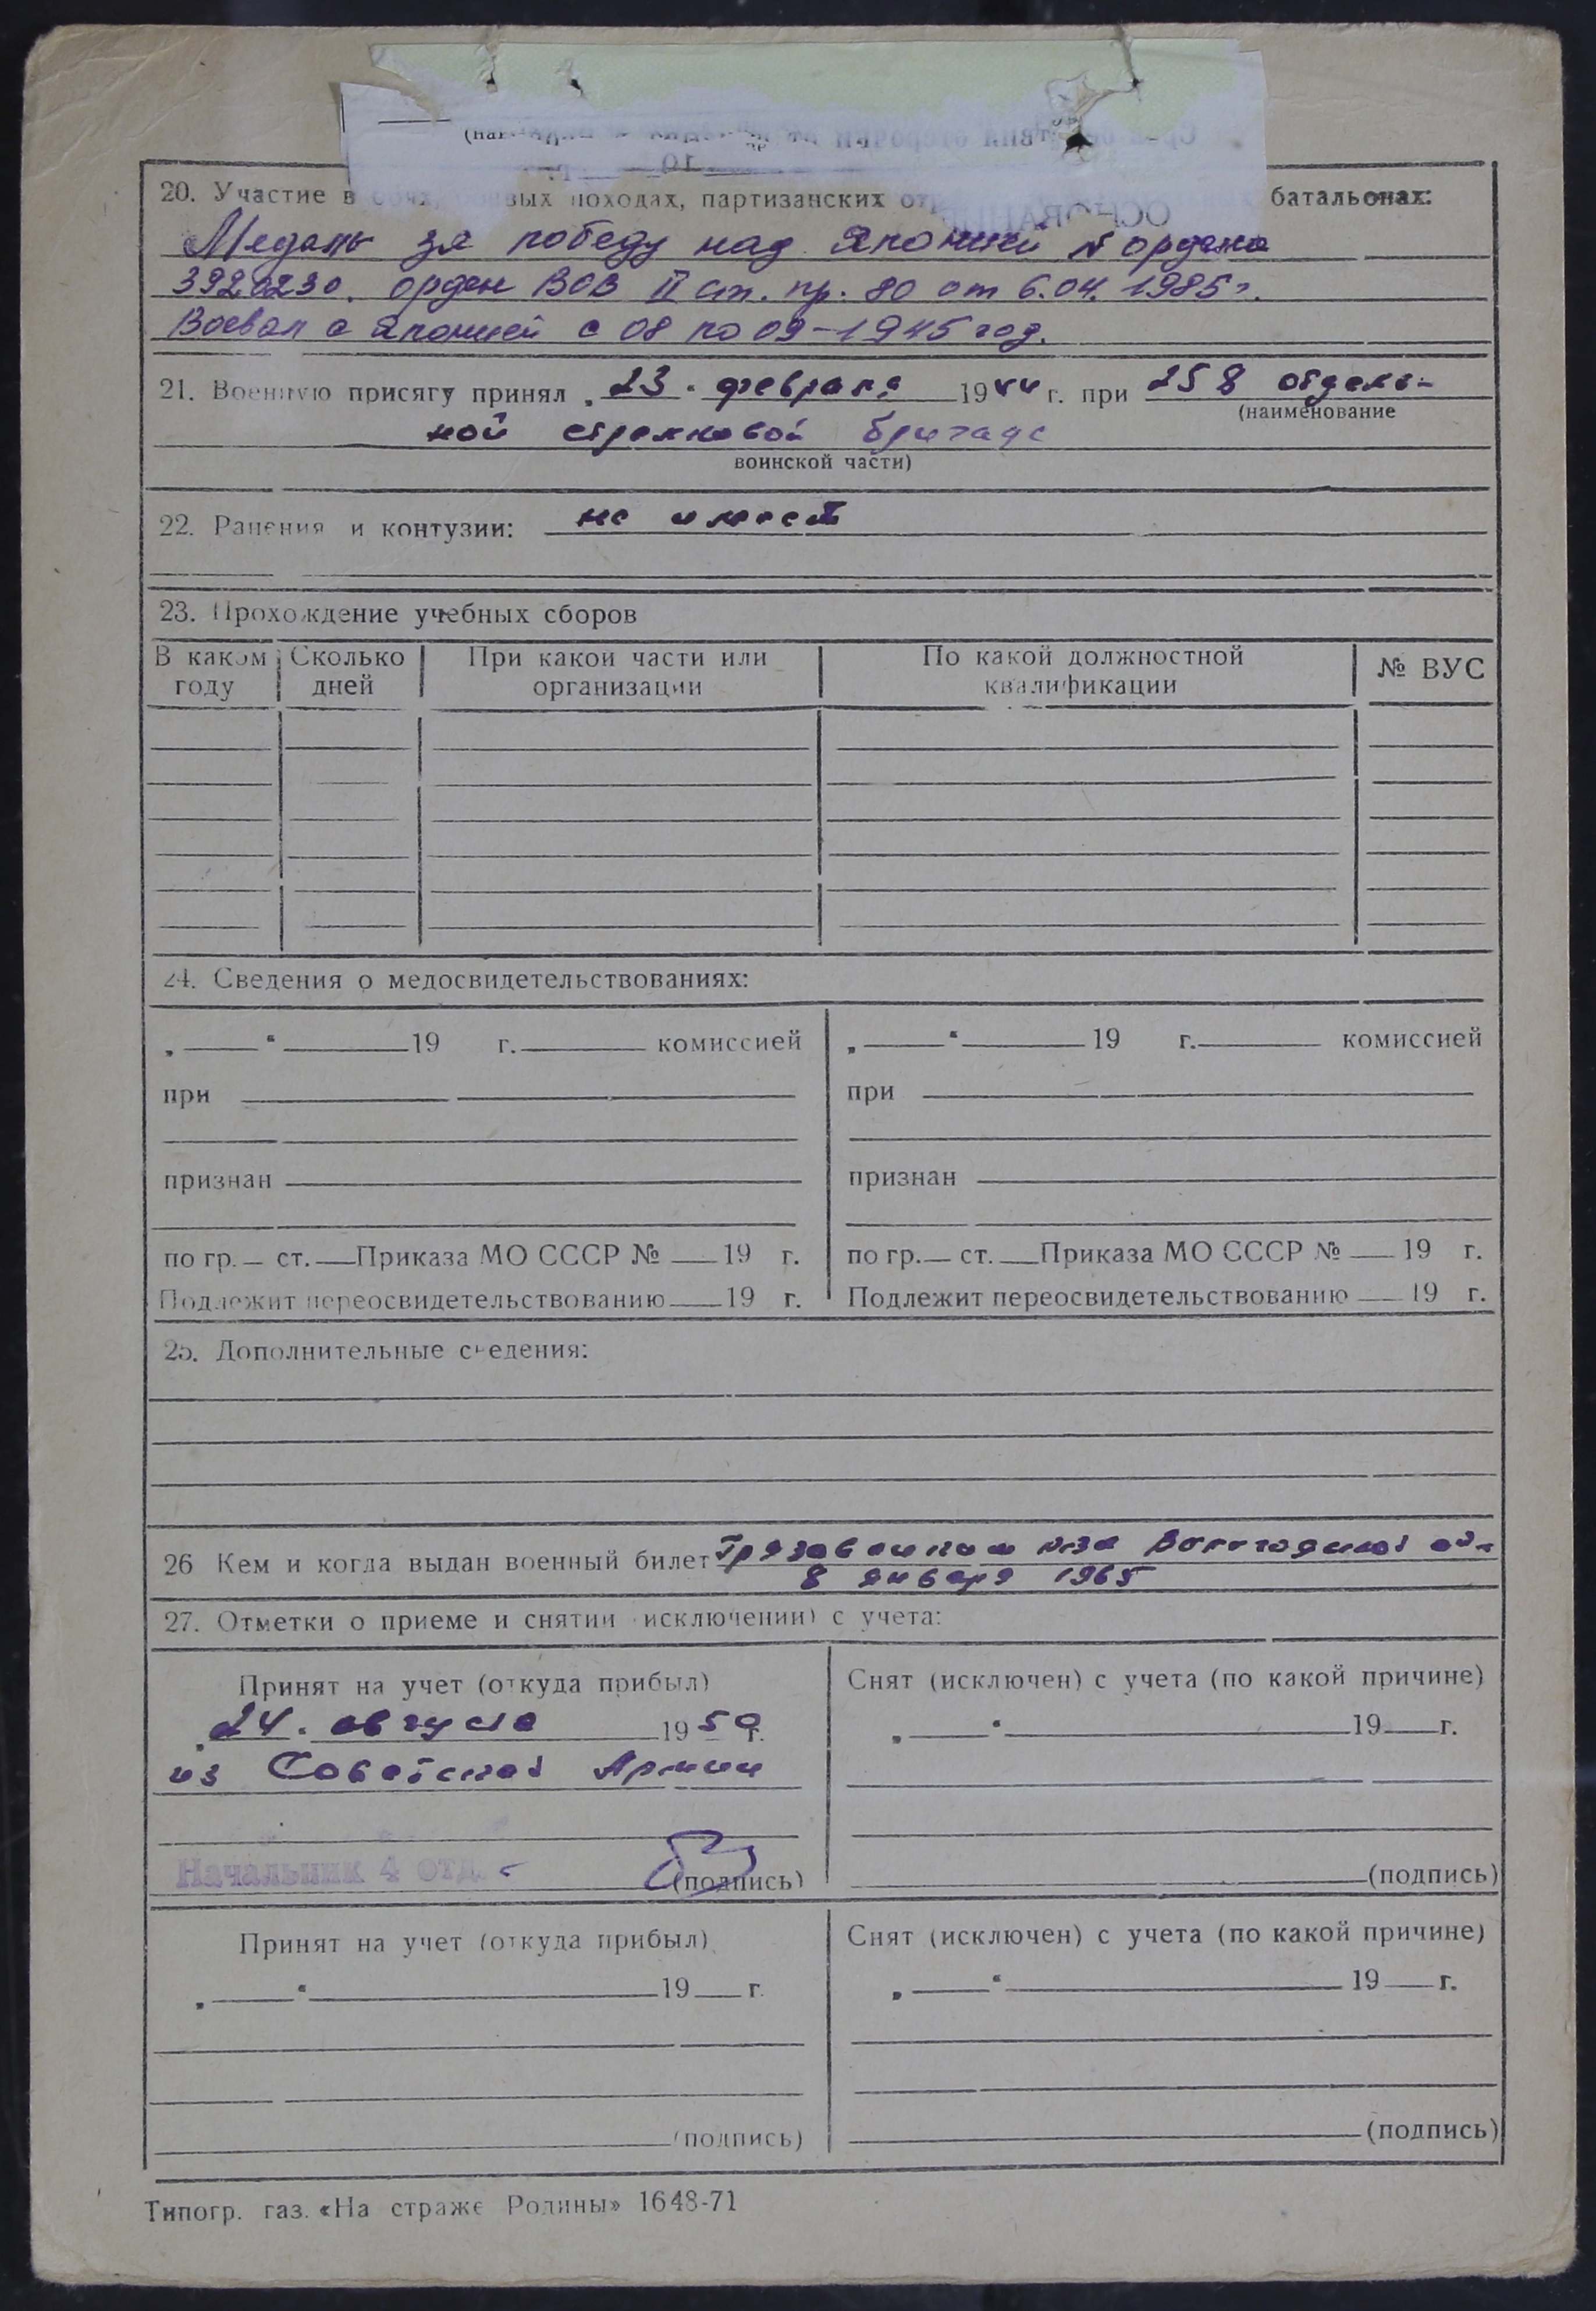 20. Участие в боях, боевых походах, партизанских батальонах:
Медаль за победу над Японией № ордена
3920230. орден ВОВ II ст. пр. 80 от 6.04.1985г.
Воевал с Японией с 08 по 09-1945 год.
21. Военную присягу принял „23“ февраля 1944 г. при 258 отдель-
(наименование
ной стрелковой бригаде
воинской части)
22. Ранения и контузии: не имеет
23. Прохождение учебных сборов
В каком году Сколько дней При какой части или организации По какой должностной квалификации № ВУС
24. Сведения о медосвидетельствованиях:
„ “ 19 г. комиссией „ “ 19 г. комиссией
при при
признан признан
по гр. ст. Приказа МО СССР № 19 г. по гр. ст. Приказа МО СССР № 19 г.
Подлежит переосвидетельствованию 19 г. Подлежит переосвидетельствованию 19 г.
25. Дополнительные сведения:
26 Кем и когда выдан военный билет Грязовецким Вологодской
8 января 1965
27. Отметки о приеме и снятии (исключении) с учета:
Принят на учет (откуда прибыл) Снят (исключен) с учета (по какой причине)
„24“ августа 1950 г. „ “ 19 г.
из Советской Армии
Начальник 4 отд. (подпись) (подпись)
Принят на учет (откуда прибыл) Снят (исключен) с учета (по какой причине)
„ “ 19 г. „ “ 19 г.
(подпись) (подпись)
Типогр. газ. «На страже Родины» 1648-71